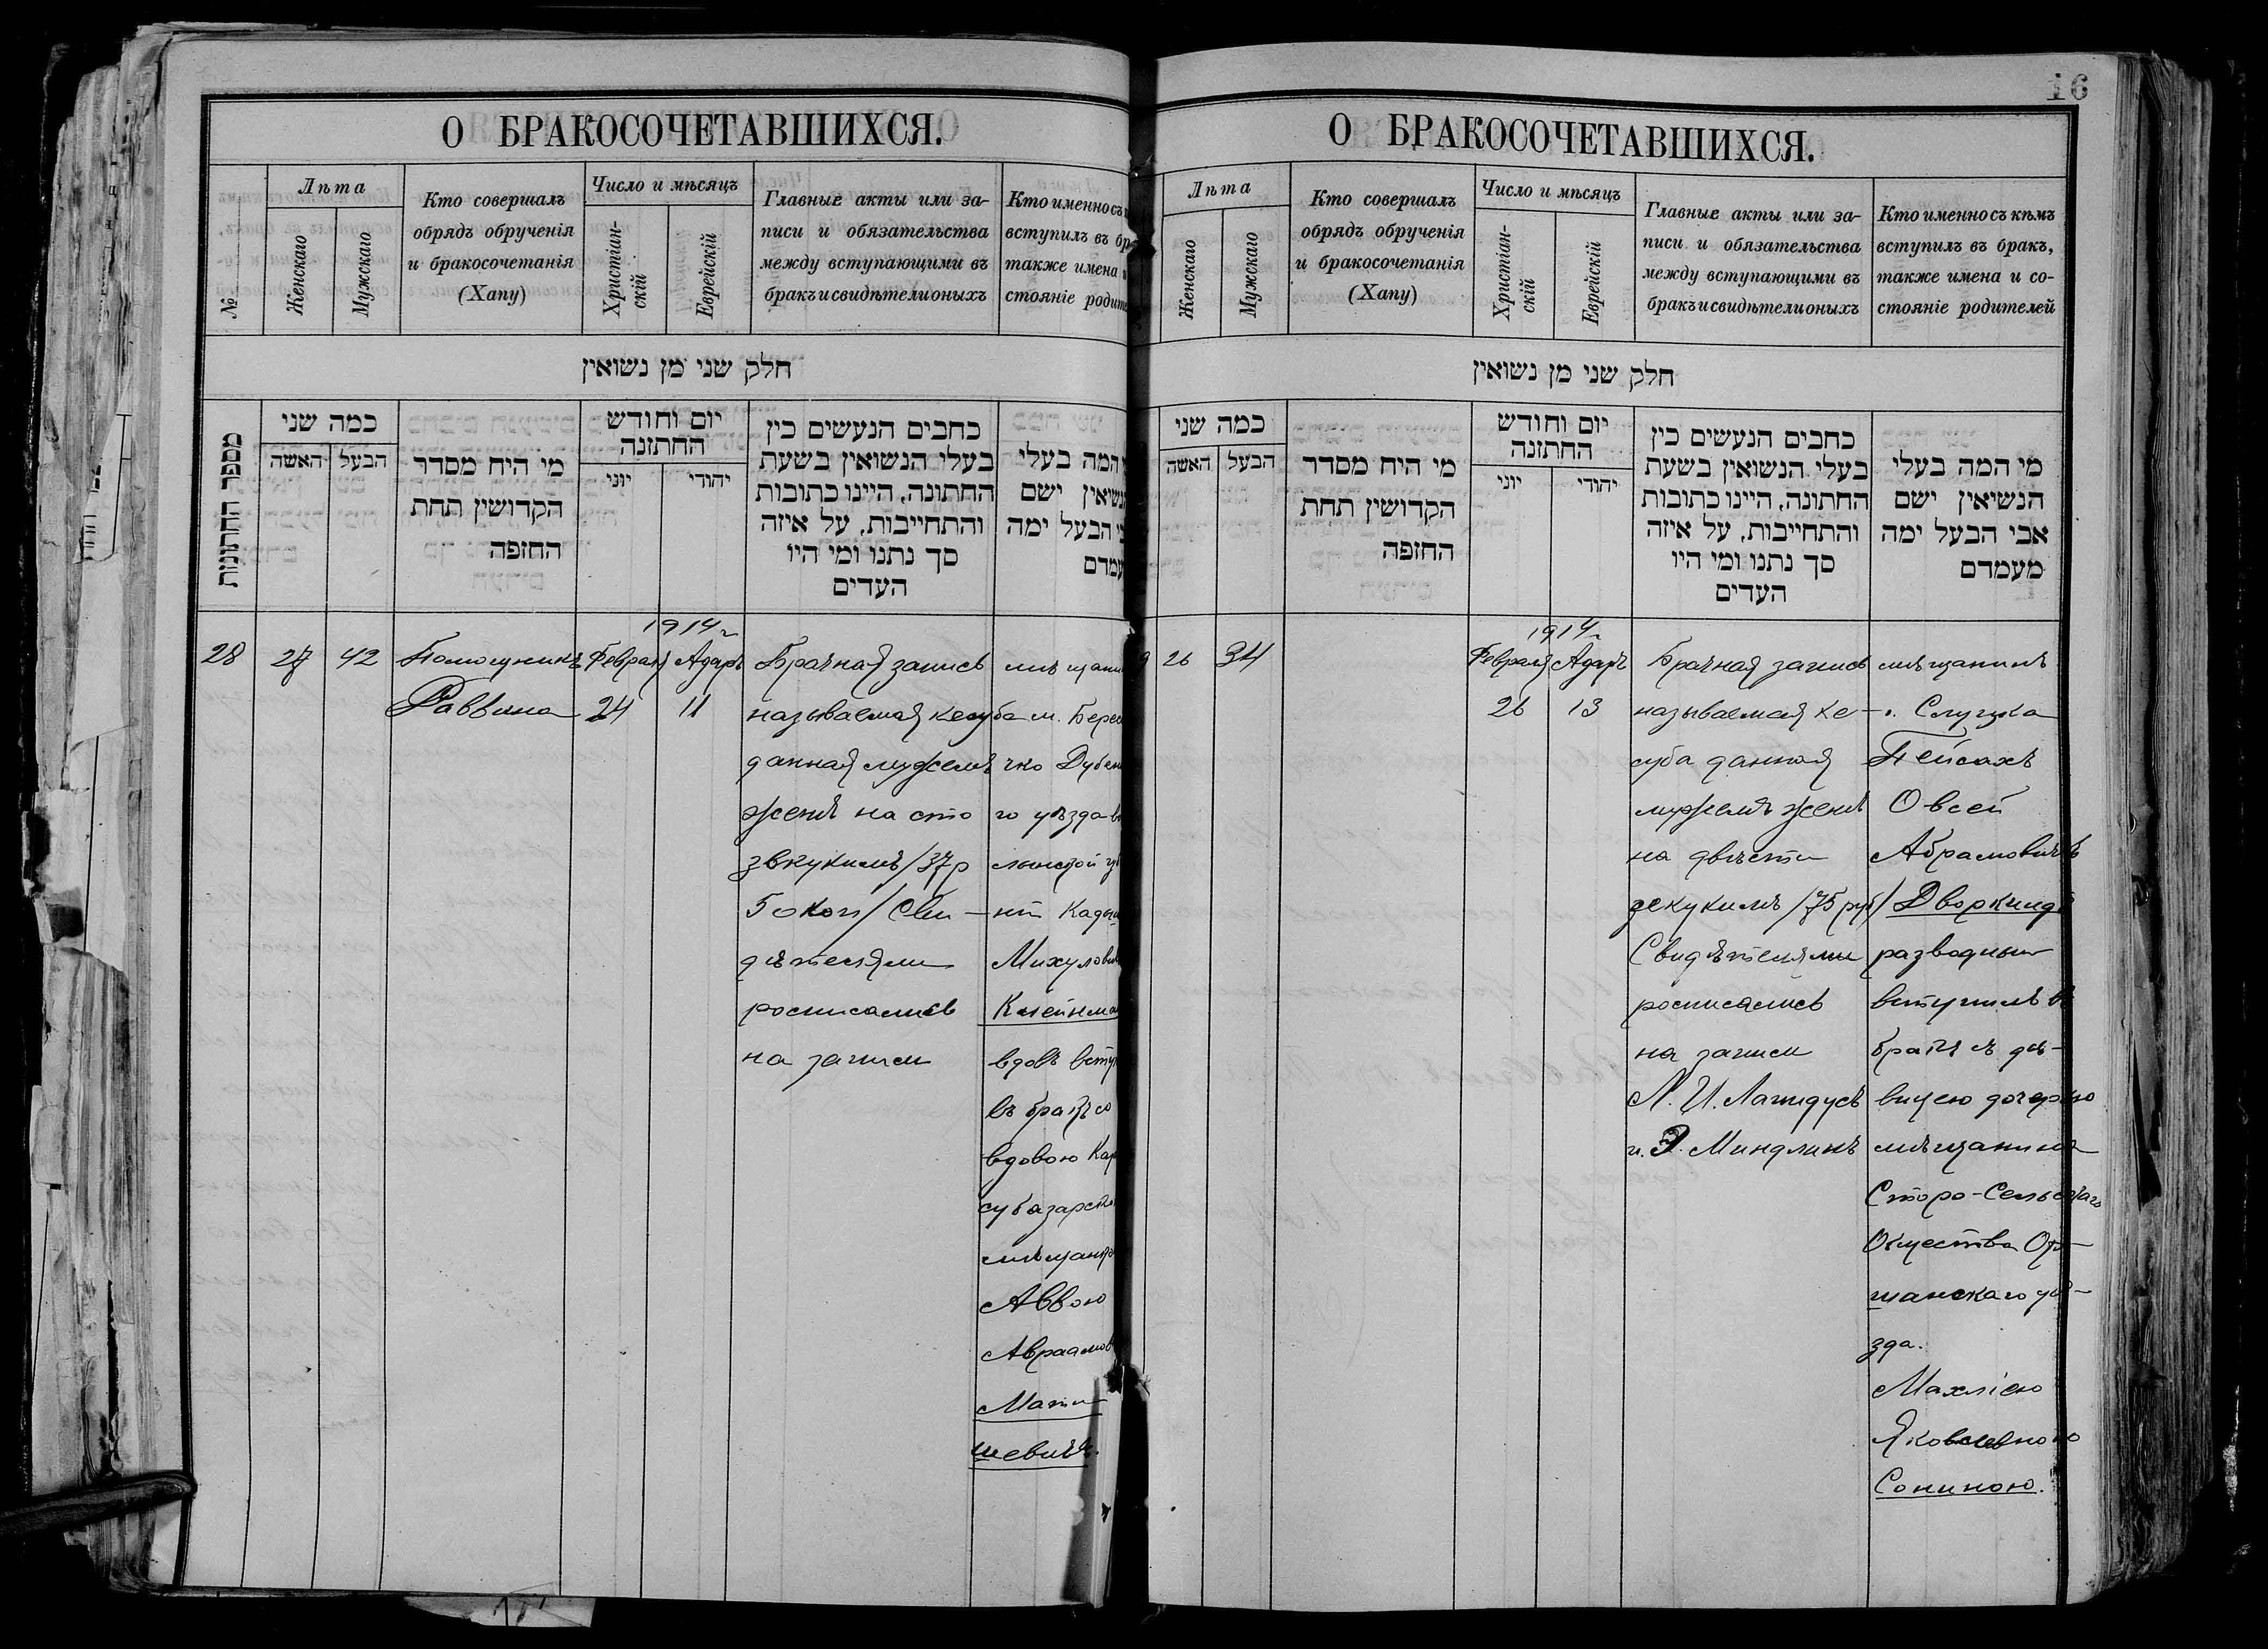 16
О БРАКОСОЧЕТАВШИХСЯ.
№
Лѣта
Женскаго
Мужскаго
Кто совершалъ
обрядъ обрученія
и бракосочетанія
(Хапу)
Число и мѣсяцъ
Христіан-
скій
Еврейскій
Главные акты или за-
писи и обязательства
между вступающими въ
бракъ и свидѣтели оныхъ
Кто именно съ
вступилъ въ бр
также имена и
стояніе родите
חלק שני מן נשואין
מספר החתונות
כמה שני
האשה
הבעל
מי היח מסדר
הקדושין תחת
החופה
יום וחודש
החתונה
יוני
יהודי
כתבים הנעשים בין
בעלי הנשואין בשעת
החתונה, היינו כתובות
והתחייבות, על איזה
סך נתנו ומי היו
העדים
המה בעלי
נשואין ישם
הבעל ימה
עמדם
28
27
42
Помощникъ
Раввина
1914 г
Февраля
24
Адаръ
11
Брачная запись
называемая кесуба
данная мужемъ
женѣ на сто
звкукимъ /37 р
50 коп/ Сви-
дѣтелями
росписались
на записи
мѣщани
м. Берес
чко Дубен
го уѣзда в
лынской гу
Михулови
Клейнма
вдов вступ
въ бракъ со
вдовою Кар
субазарск
мѣщанк
Аввою
Авраамов
Мати
шевичъ.
О БРАКОСОЧЕТАВШИХСЯ.
Лѣта
Женскаго
Мужскаго
Кто совершалъ
обрядъ обрученія
и бракосочетанія
(Хапу)
Число и мѣсяцъ
Христіан-
скій
Еврейскій
Главные акты или за-
писи и обязательства
между вступающими въ
бракъ и свидѣтели оныхъ
Кто именно съ кѣмъ
вступилъ въ бракъ,
также имена и со-
стояніе родителей
חלק שני מן נשואין
כמה שני
האשה
הבעל
מי היח מסדר
הקדושין תחת
החופה
יום וחודש
החתונה
יוני
יהודי
כתבים הנעשים בין
בעלי הנשואין בשעת
החתונה, היינו כתובות
והתחייבות, על איזה
סך נתנו ומי היו
העדים
מי המה בעלי
הנשיאין ישם
אבי הבעל ימה
מעמדם
26
34
1914 г
Февраля
26
Адаръ
13
Брачная запись
называемая ке-
суба данная
мужемъ женѣ
на двѣсти
зекукимъ /75 руб/
Свидѣтелями
росписались
на записи
Л. И. Лапидусъ
и Э. Миндлинъ
мѣщанинъ
г. Слуцка
Пейсахъ
Овсей
Абрамовичъ
Дворкинд
разводный
вступилъ в
бракъ съ дѣ-
вицею дочерью
мѣщанина
Старо-Сельскаго
Общества Ор-
шанскаго уѣ-
зда.
Махліею
Яковлевною
Сониною.